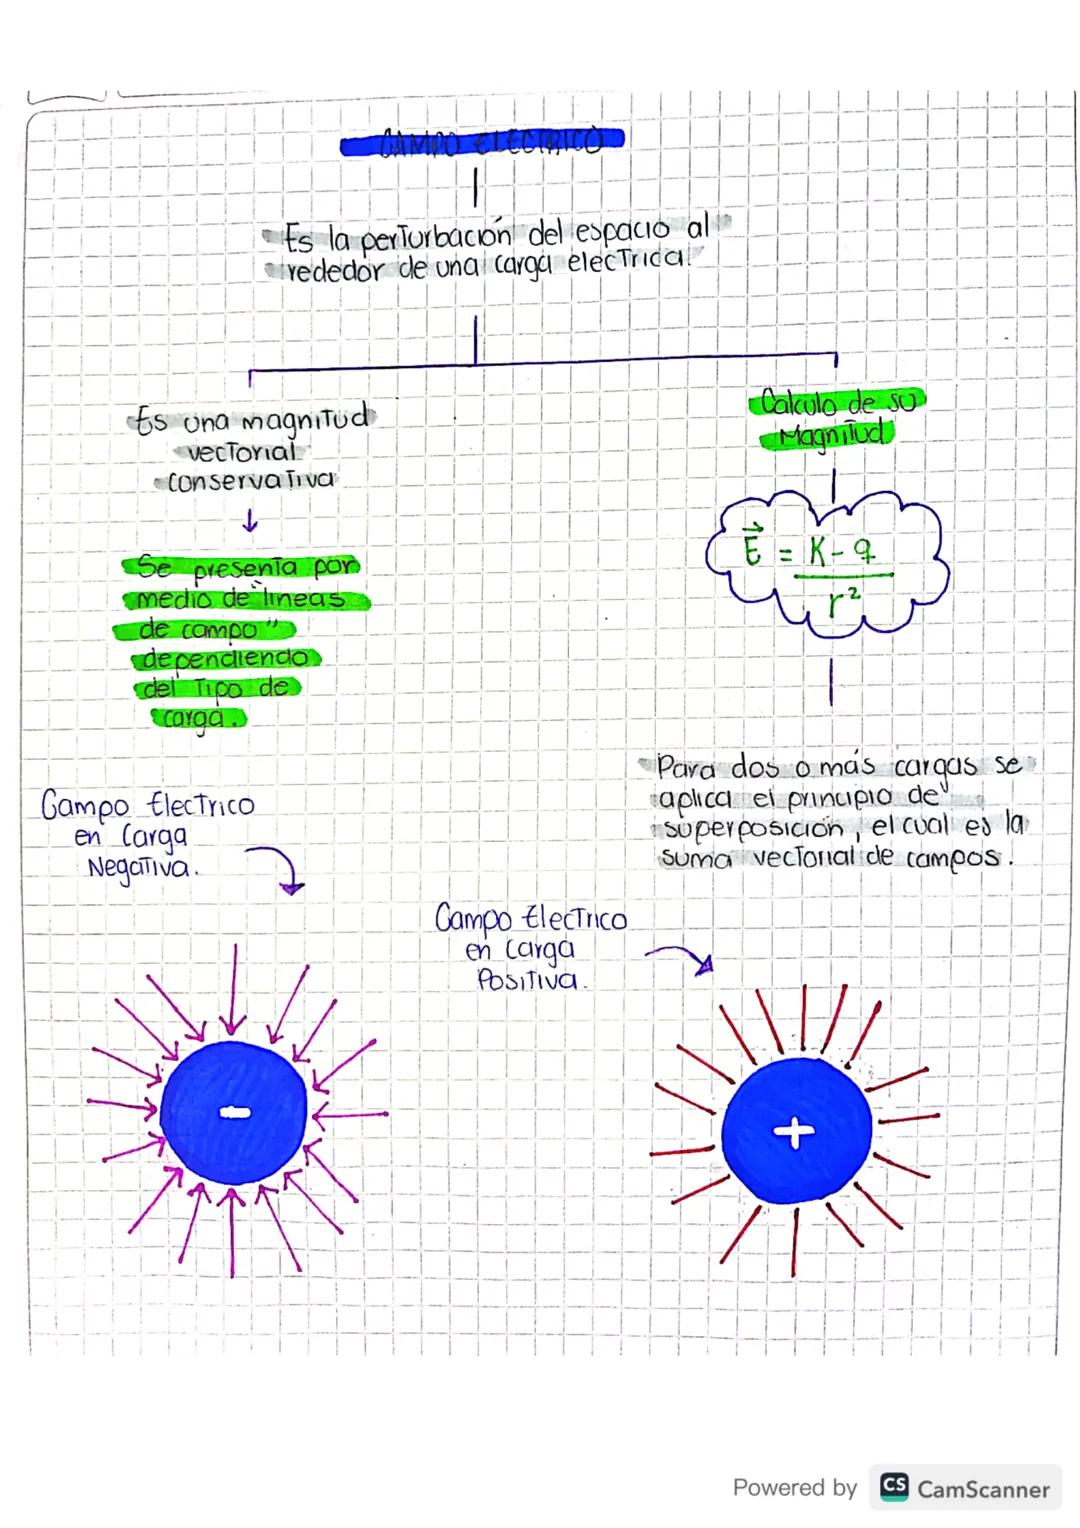 CAMPO ELECTRICO
Es la perTurbación del espacio al
rededor de una carga elecTrica.
Es una magniTud
vecTorial
conservaTiva
↓
Se presenTa por
medio de "lineas
de campo"
dependiendo
del Tipo de
carga.
Calculo de su
MagniTud
E⃗ = K - q
r²
Para dos o más cargas se
aplica el principio de
superposición, el cual es la
suma vecTorial de campos.
Campo ElecTrico
en Carga
NegaTiva.
Campo ElecTrico
en Carga
PosiTiva.
-
+
Powered by CS CamScanner